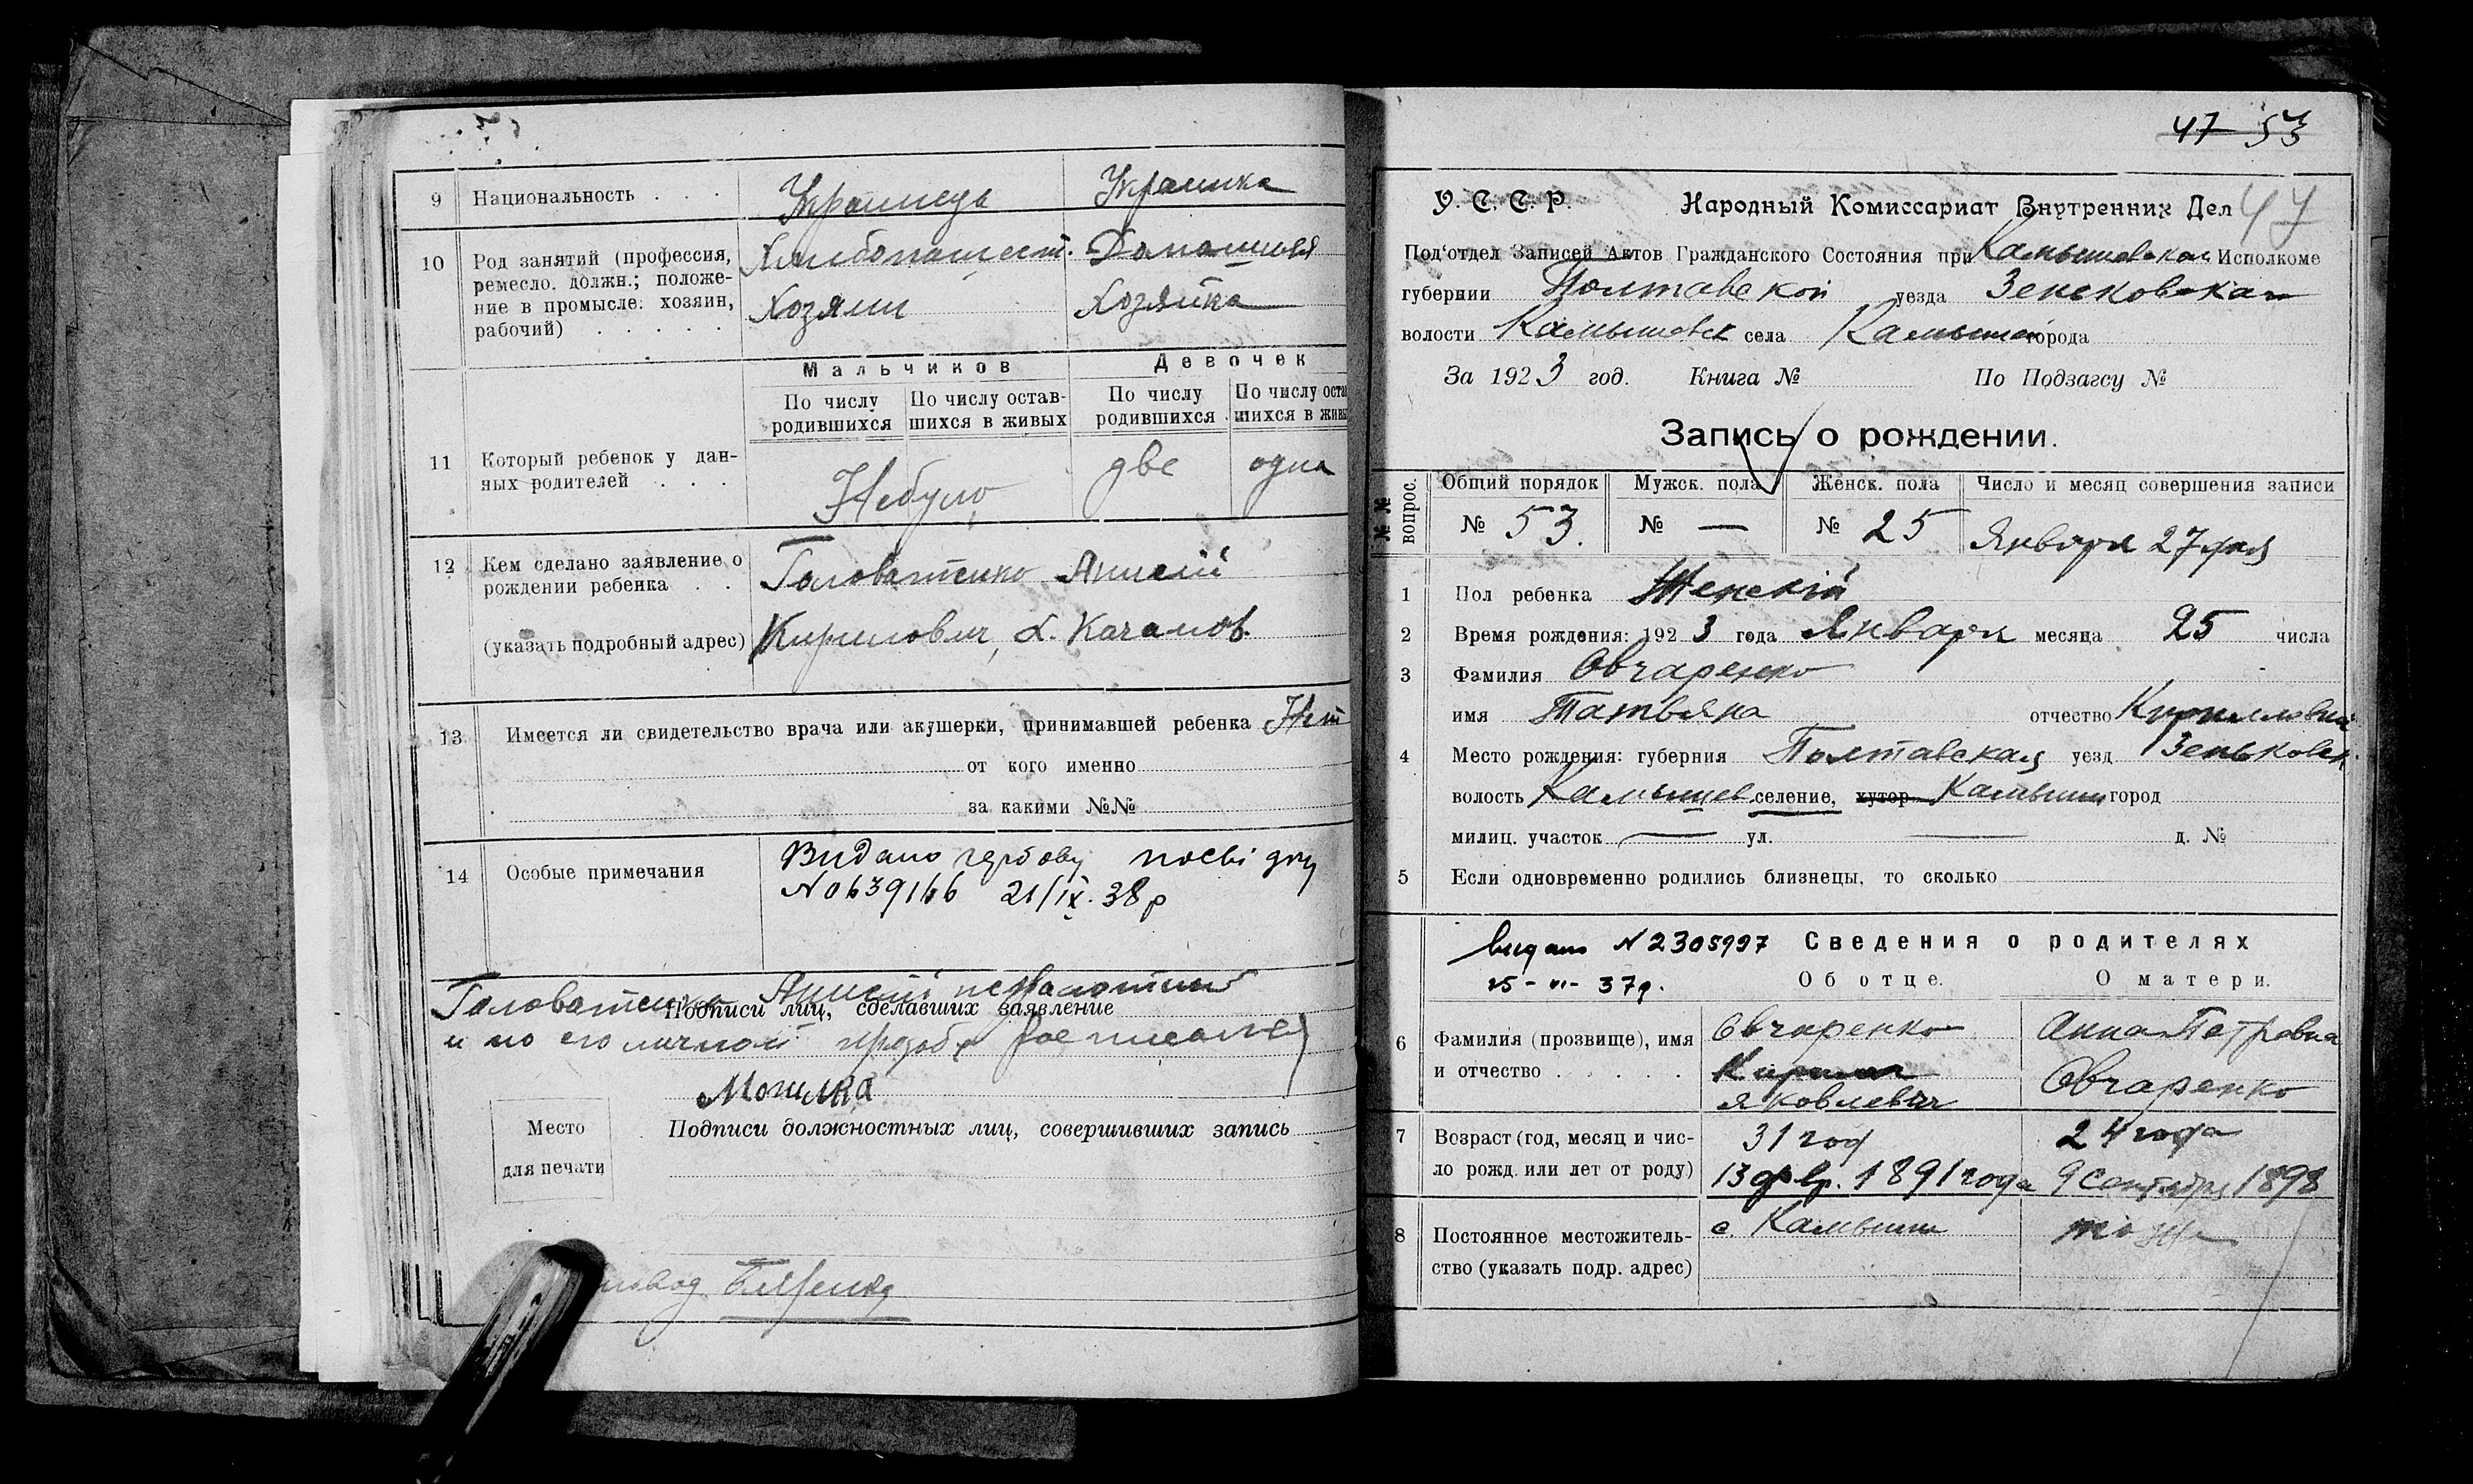 9 Национальность . . . Украинець Украинка
10 Род занятий (профессия, Хлибопашест. Домашняя
ремесло. должн.; положе-
ние в промысле: хозяин, Хозяин Хозяйка
рабочий) . . . . .
Мальчиков Девочек
По числу родившихся По числу остав-шихся в живых По числу родившихся По числу оста шихся в живы
11 Который ребенок у дан-
ных родителей . . . Небуло две одна
12 Кем сделано заявление о Головатенко Анисій
рождении ребенка . .
(указать подробный адрес) Кирилович, х. Качанов.
13 Имеется ли свидетельство врача или акушерки, принимавшей ребенка Нет
от кого именно
за какими №№
14 Особые примечания Видано гербову посвідку
N 0639166 21/IX. 38 р
Головатенко Анисій неграмотный
Подписи лиц, сделавших заявление
и по его личной прозьбе росписался
Могилка
Место
для печати
Подписи должностных лиц, совершивших запись
47 53
У. С. С. Р. Народный Комиссариат Внутренних Дел 47
Под'отдел Записей Актов Гражданского Состояния при Камышовском Исполкоме
губернии Полтавской уезда Зенсковскаго
волости Камышовск села Камыши города
За 1923 год. Книга № По Подзагсу №
Запись о рождении.
№№ вопрос. Общий порядок Мужск. пола Женск. пола Число и месяц совершения записи
№ 53. № — № 25 Января 27 дня
1 Пол ребенка Женскій
2 Время рождения: 1923 года Января месяца 25 числа
3 Фамилия Овчаренко
имя Татьяна отчество Кирилловна
4 Место рождения: губерния Полтавская уезд Зеньковск.
волость Камышев. селение, хутор Камыши город
милиц. участок — ул. — д. №
5 Если одновременно родились близнецы, то сколько
видано N 2305997 Сведения о родителях
25-VI-37р. Об отце. О матери.
6 Фамилия (прозвище), имя Овчаренко Анна Петровна
и отчество . . . . . Кирилл Овчаренко
Яковлевич
7 Возраст (год, месяц и чис- 31 год 24 года
ло рожд. или лет от роду) 13 февр. 1891 года 9 Сентября 1898
8 Постоянное местожитель- с. Камыши то же
ство (указать подр. адрес)